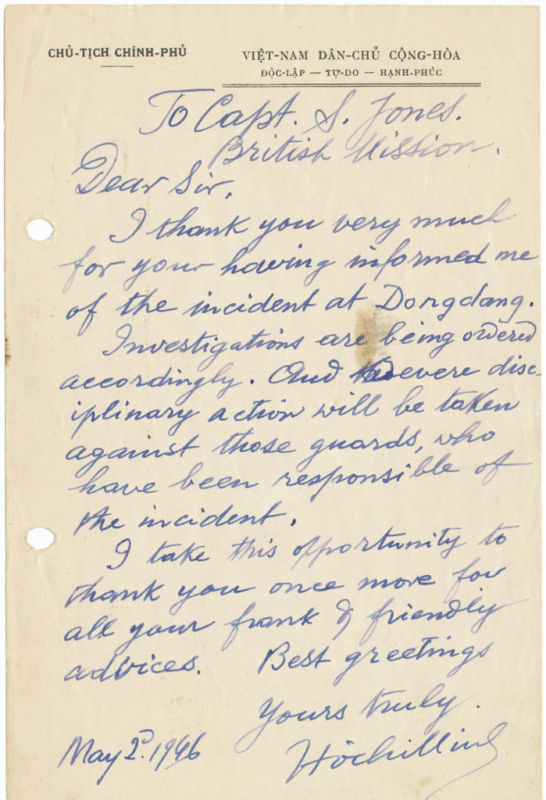 CHỦ-TỊCH CHÍNH-PHỦ
VIỆT-NAM DÂN-CHỦ CỘNG-HÒA
ĐỘC-LẬP — TỰ-DO — HẠNH-PHÚC
To Capt. S. Jones.
British Mission.
Dear Sir,
I thank you very much
for your having informed me
of the incident at Dongdang.
Investigations are being ordered
accordingly. And severe disc-
iplinary action will be taken
against those guards, who
have been responsible of
the incident.
I take this opportunity to
thank you once more for
all your frank & friendly
advices. Best greetings
Yours truly.
May 2d. 1946
Hồchíminh